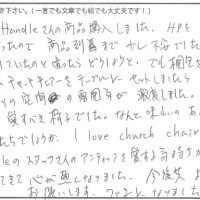 き下さい。(一言でも文章でも絵でも大丈夫です!)
Handleさんの商品購入しました。HPを
ったので 商品到着まで 少し不安でした
していたのと違ったら どうしようと。でも梱包を
チャーチチェアーをテーブルに セットしましたら
の空間の雰囲気が 激変しました。
愛すべき椅子でした。なんと味わいのあ
たらでしょうか。I love church chair
leのスタッフさんのアンティークを愛する気持ちが
てきて 心が熱くなりました。今後共 よ
お願いします。ファンになりました